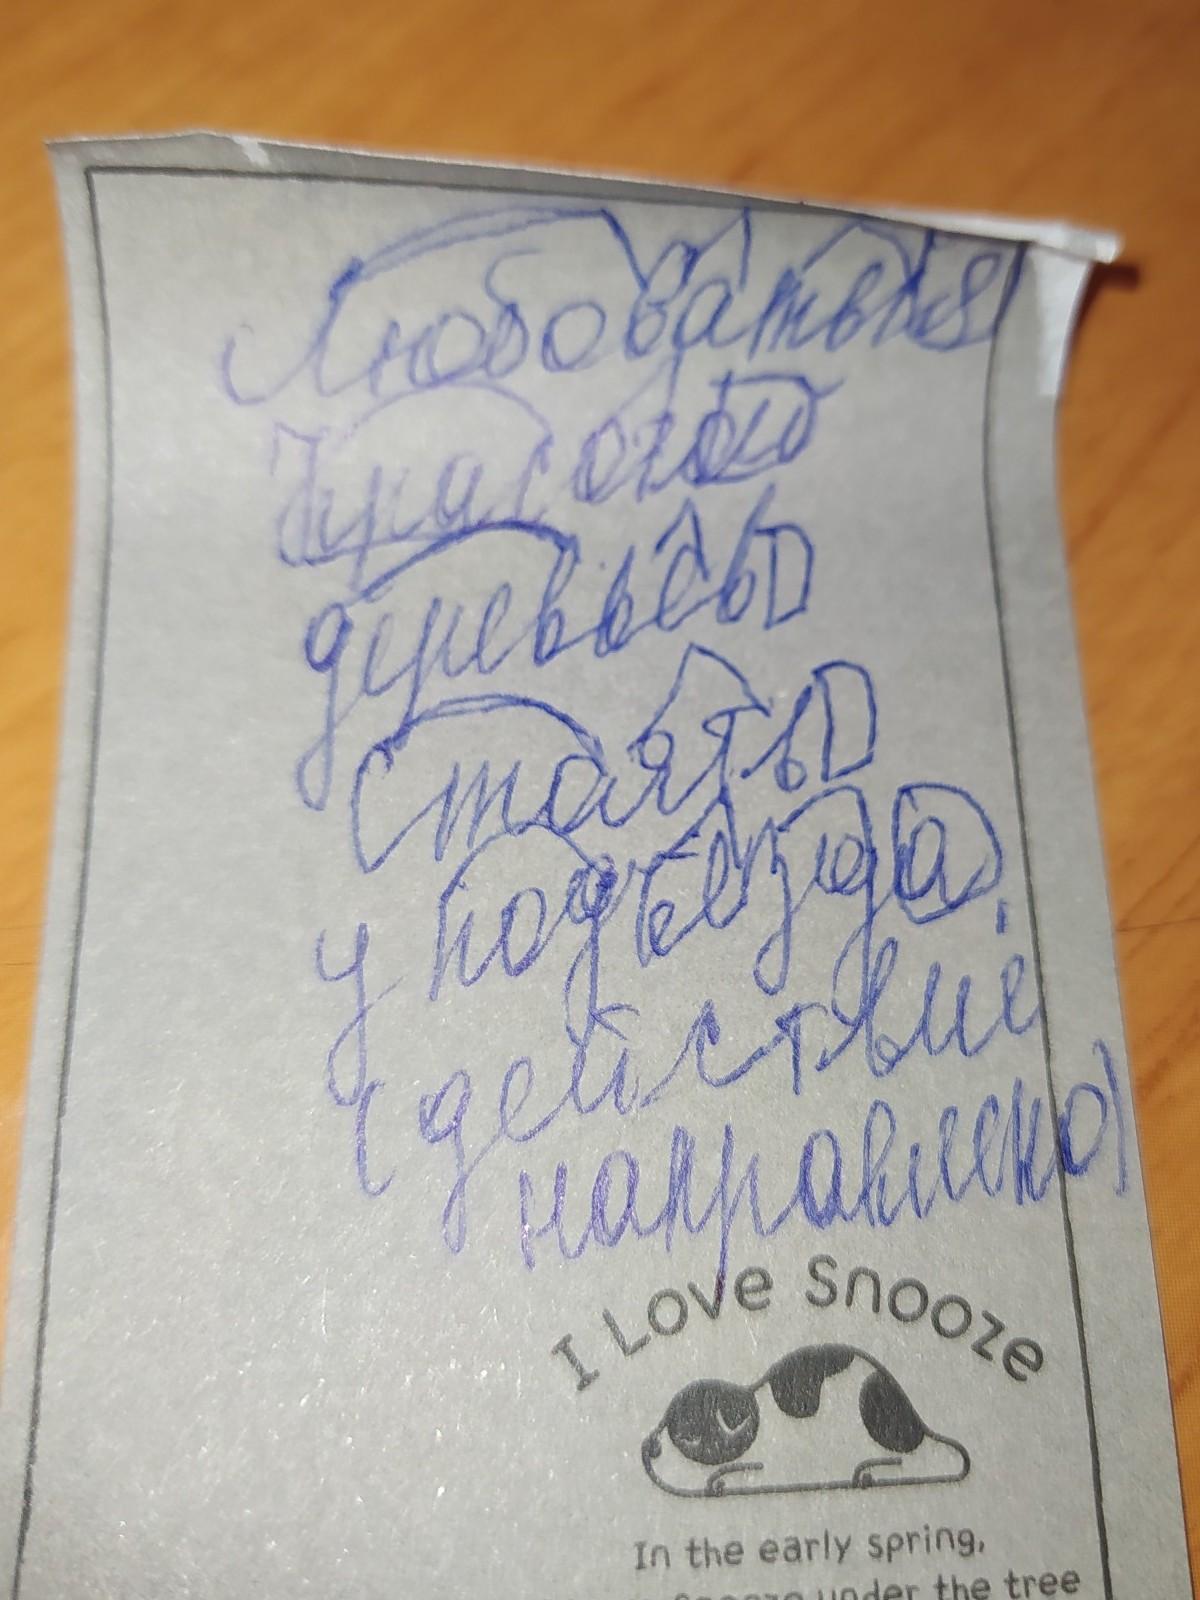 Любоваться
красотой
деревьев
стоять
у подъезда,
(действие
направлено)
I Love Snooze
In the early spring,
Snooze under the tree